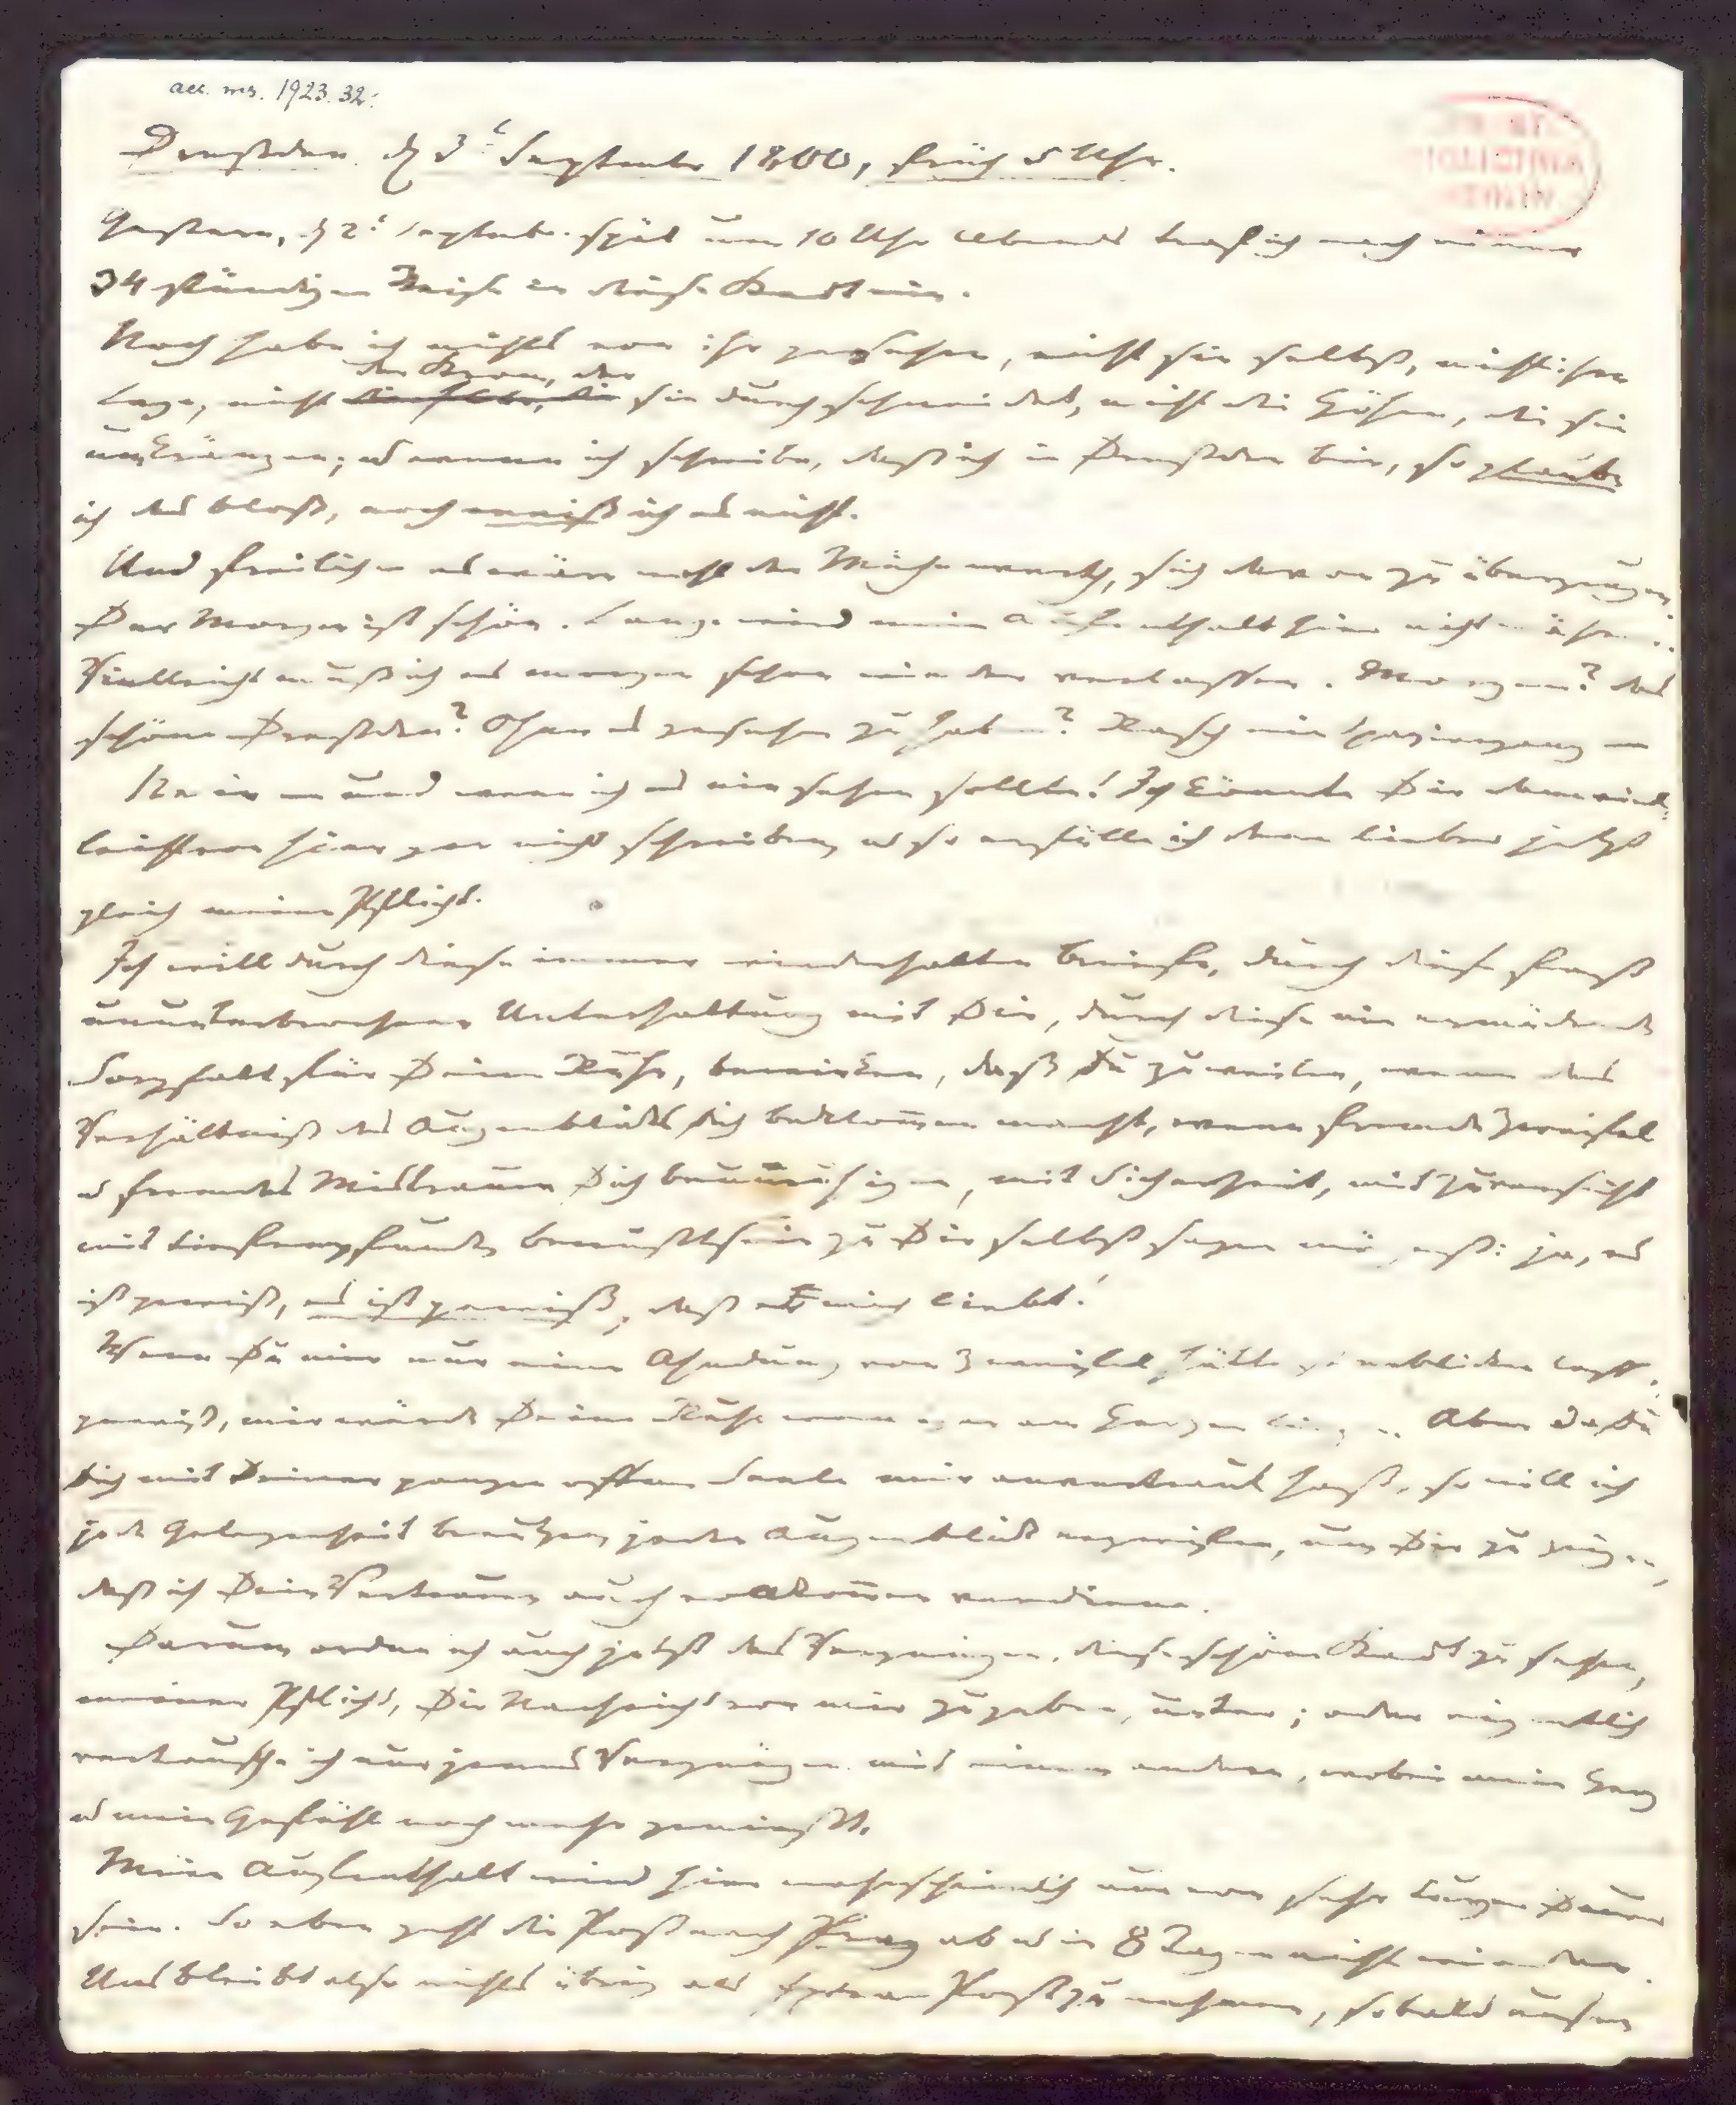 acc. ms. 1923. 32.
Dreßden. d 3t September 1800, früh 5 Uhr.
Gestern, d 2t September spät um 10 Uhr Abends traf ich nach einer
34 stündigen Reise in dieser Stadt ein.
Noch habe ich nichts von ihr gesehen, nicht sie selbst, nicht ihre
Lage, nicht den Strom, der sie durchschneidet, nicht die Höhen, die sie
umkränzen; u wenn ich schreibe, daß ich in Dreßden bin, so glaube
ich das bloß, noch weiß ich es nicht.
Und freilich es wäre wohl der Mühe werth, sich davon zu überzeugen.
Der Morgen ist schön. Lange wird mein Aufenthalt hier nicht währen.
Vielleicht muß ich es morgen schon wieder verlassen. Morgen? das
schöne Dreßden? Ohne es gesehen zu haben? Rasch ein Spatziergang
Nein und wenn ich es nie sehen sollte! Ich könnte Dir dann viel-
leicht von hier gar nicht schreiben, u so erfülle ich denn lieber jetzt
gleich meine Pflicht.
Ich will durch diese immer wiederholten Briefe, durch diese fast
ununterbrochene Unterhaltung mit Dir, durch diese nie ermüdende
Sorgfalt für Deine Ruhe, bewirken, daß Du zuweilen, wenn das
Verhältniß des Augenblicks Dich beklom̅en macht, wenn fremde Zweifel
u fremdes Mistrauen Dich beunruhigen, mit Sicherheit, mit Zuversicht
mit tiefempfundnem Bewustsein zu Dir selbst sagen mögest: ja, es
ist gewiß, es ist gewiß, daß er mich liebt!
Wenn Du mir nur eine Ahndung von Zweifel hättest erblicken lassen,
gewiß, mir würde Deine Ruhe weniger am Herzen liegen. Aber da Du
Dich mit Deiner ganzen offnen Seele mir anvertraut hast, so will ich
jede Gelegenheit benutzen, jeden Augenblick ergreifen, um Dir zu zeigen,
daß ich Dein Vertrauen auch vollkom̅en verdiene.
Darum ordne ich auch jetzt das Vergnügen, diese schöne Stadt zu sehen,
meiner Pflicht, Dir Nachricht von mir zu geben, unter; oder eigentlich
vertausche ich nur jenes Vergnügen mit einem andern, wobei mein Herz
u mein Gefühl noch mehr genießt.
Mein Aufenthalt wird hier wahrscheinlich nur von sehr kurzer Dauer
sein. So eben geht die Post nach Prag ab u in 8 Tagen nicht wieder.
Uns bleibt also nichts übrig als Extra Post zu nehmen, sobald unsre